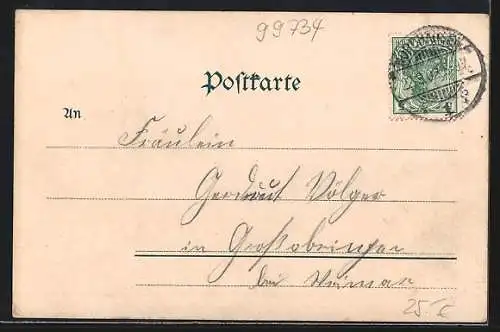 99734
Postkarte
An
Fräulein
Völger
in Großobringen
bei Weimar
25.-